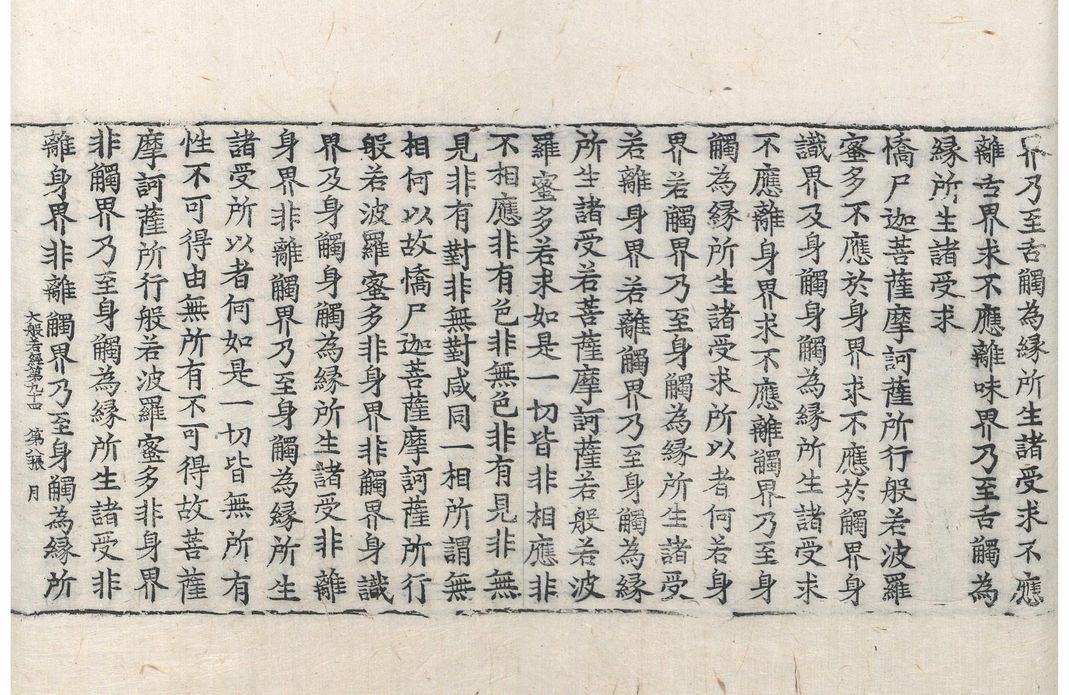 界乃至舌觸為緣所生諸受求不應
離舌界求不應離味界乃至舌觸為
緣所生諸受求
憍尸迦菩薩摩訶薩所行般若波羅
蜜多不應於身界求不應於觸界身
識界及身觸身觸為緣所生諸受求
不應離身界求不應離觸界乃至身
觸為緣所生諸受求所以者何若身
界若觸界乃至身觸為緣所生諸受
若離身界若離觸界乃至身觸為緣
所生諸受若菩薩摩訶薩若般若波
羅蜜多若求如是一切皆非相應非
不相應非有色非無色非有見非無
見非有對非無對咸同一相所謂無
相何以故憍尸迦菩薩摩訶薩所行
般若波羅蜜多非身界非觸界身識
界及身觸身觸為緣所生諸受非離
身界非離觸界乃至身觸為緣所生
諸受所以者何如是一切皆無所有
性不可得由無所有不可得故菩薩
摩訶薩所行般若波羅蜜多非身界
非觸界乃至身觸為緣所生諸受非
離身界非離觸界乃至身觸為緣所
大般若經第九十四 第八張 月